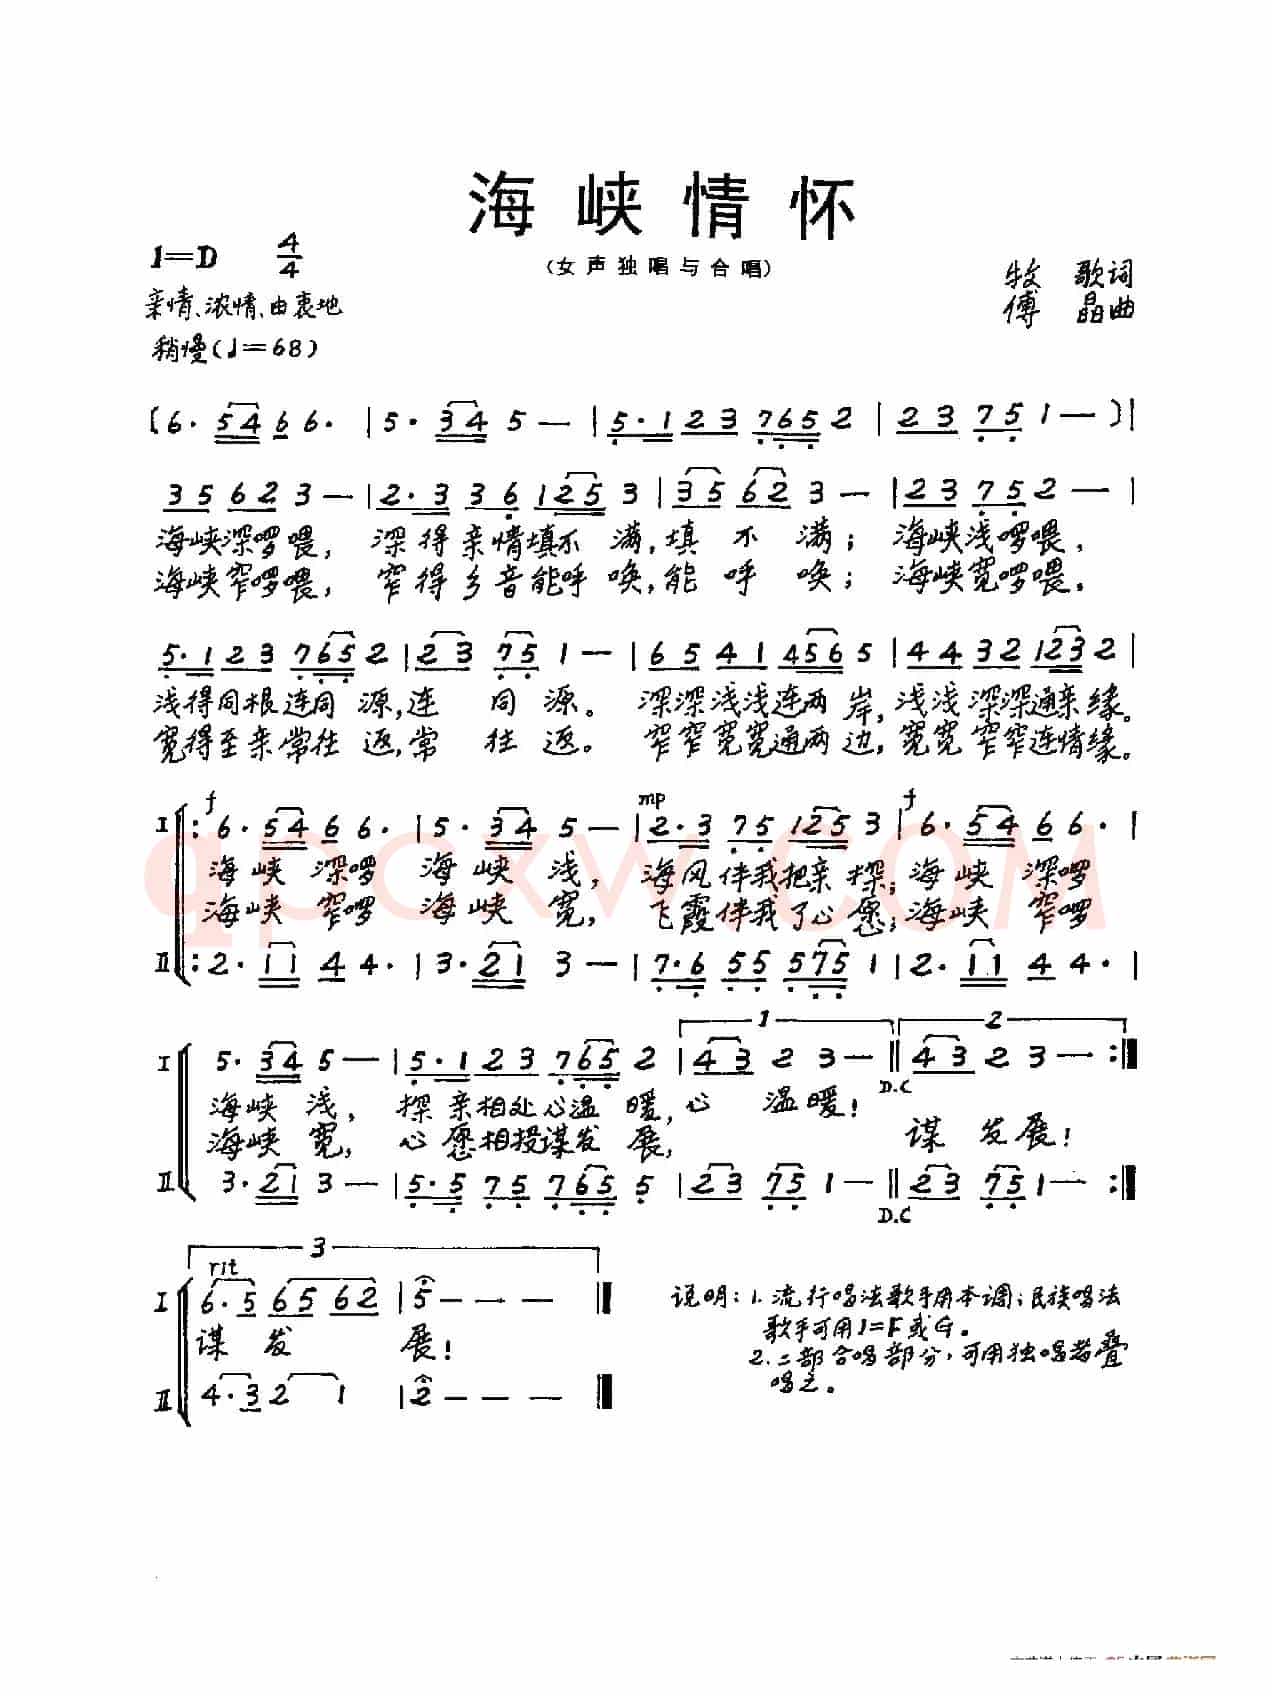 海峡情怀
1=D 4/4
(女声独唱与合唱)
牧 歌词
亲情、浓情、由衷地
傅 晶曲
稍慢(♩=68)
(6· 5 4 6 6· | 5· 3 4 5 — | 5· 1 2 3 7 6 5 2 | 2 3 7 5 1 — )|
3 5 6 2 3 — | 2· 3 3 6 1 2 5 3 | 3 5 6 2 3 — | 2 3 7 5 2 — |
海峡深啰喂, 深得亲情填不 满,填 不 满; 海峡浅啰喂,
海峡窄啰喂, 窄得乡音能呼 唤,能 呼 唤; 海峡宽啰喂,
5· 1 2 3 7 6 5 2 | 2 3 7 5 1 — | 6 5 4 1 4 5 6 5 | 4 4 3 2 1 2 3 2 |
浅得同根连同 源,连 同 源。 深深浅浅连两 岸,浅浅深深通亲缘。
宽得至亲常往 返,常 往 返。 窄窄宽宽通两 边,宽宽窄窄连情缘。
f mp f
I :6· 5 4 6 6· | 5· 3 4 5 — | 2· 3 7 5 1 2 5 3 | 6· 5 4 6 6· |
海峡 深啰 海 峡 浅, 海风伴我把亲 探;海 峡 深啰
海峡 窄啰 海 峡 宽, 飞霞伴我了心 愿;海 峡 窄啰
II :2· 1 1 4 4· | 3· 2 1 3 — | 7· 6 5 5 5 7 5 1 | 2· 1 1 4 4· |
1 2
I 5· 3 4 5 — | 5· 1 2 3 7 6 5 2 | 4 3 2 3 — ‖ 4 3 2 3 — :‖
D.C
海峡 浅, 探亲相处心温 暖,心 温暖!
海峡 宽, 心愿相投谋发 展, 谋 发展!
II 3· 2 1 3 — | 5· 5 7 5 7 6 5 5 | 2 3 7 5 1 — ‖ 2 3 7 5 1 — :‖
D.C
3
rit
I 6· 5 6 5 6 2 | 5 — — — ‖
谋 发 展!
II 4· 3 2 1 | 2 — — — ‖
说明:1.流行唱法歌手用本调;民族唱法
歌手可用1=F或G。
2.二部合唱部分,可用独唱者叠
唱之。
qpcxw.COM